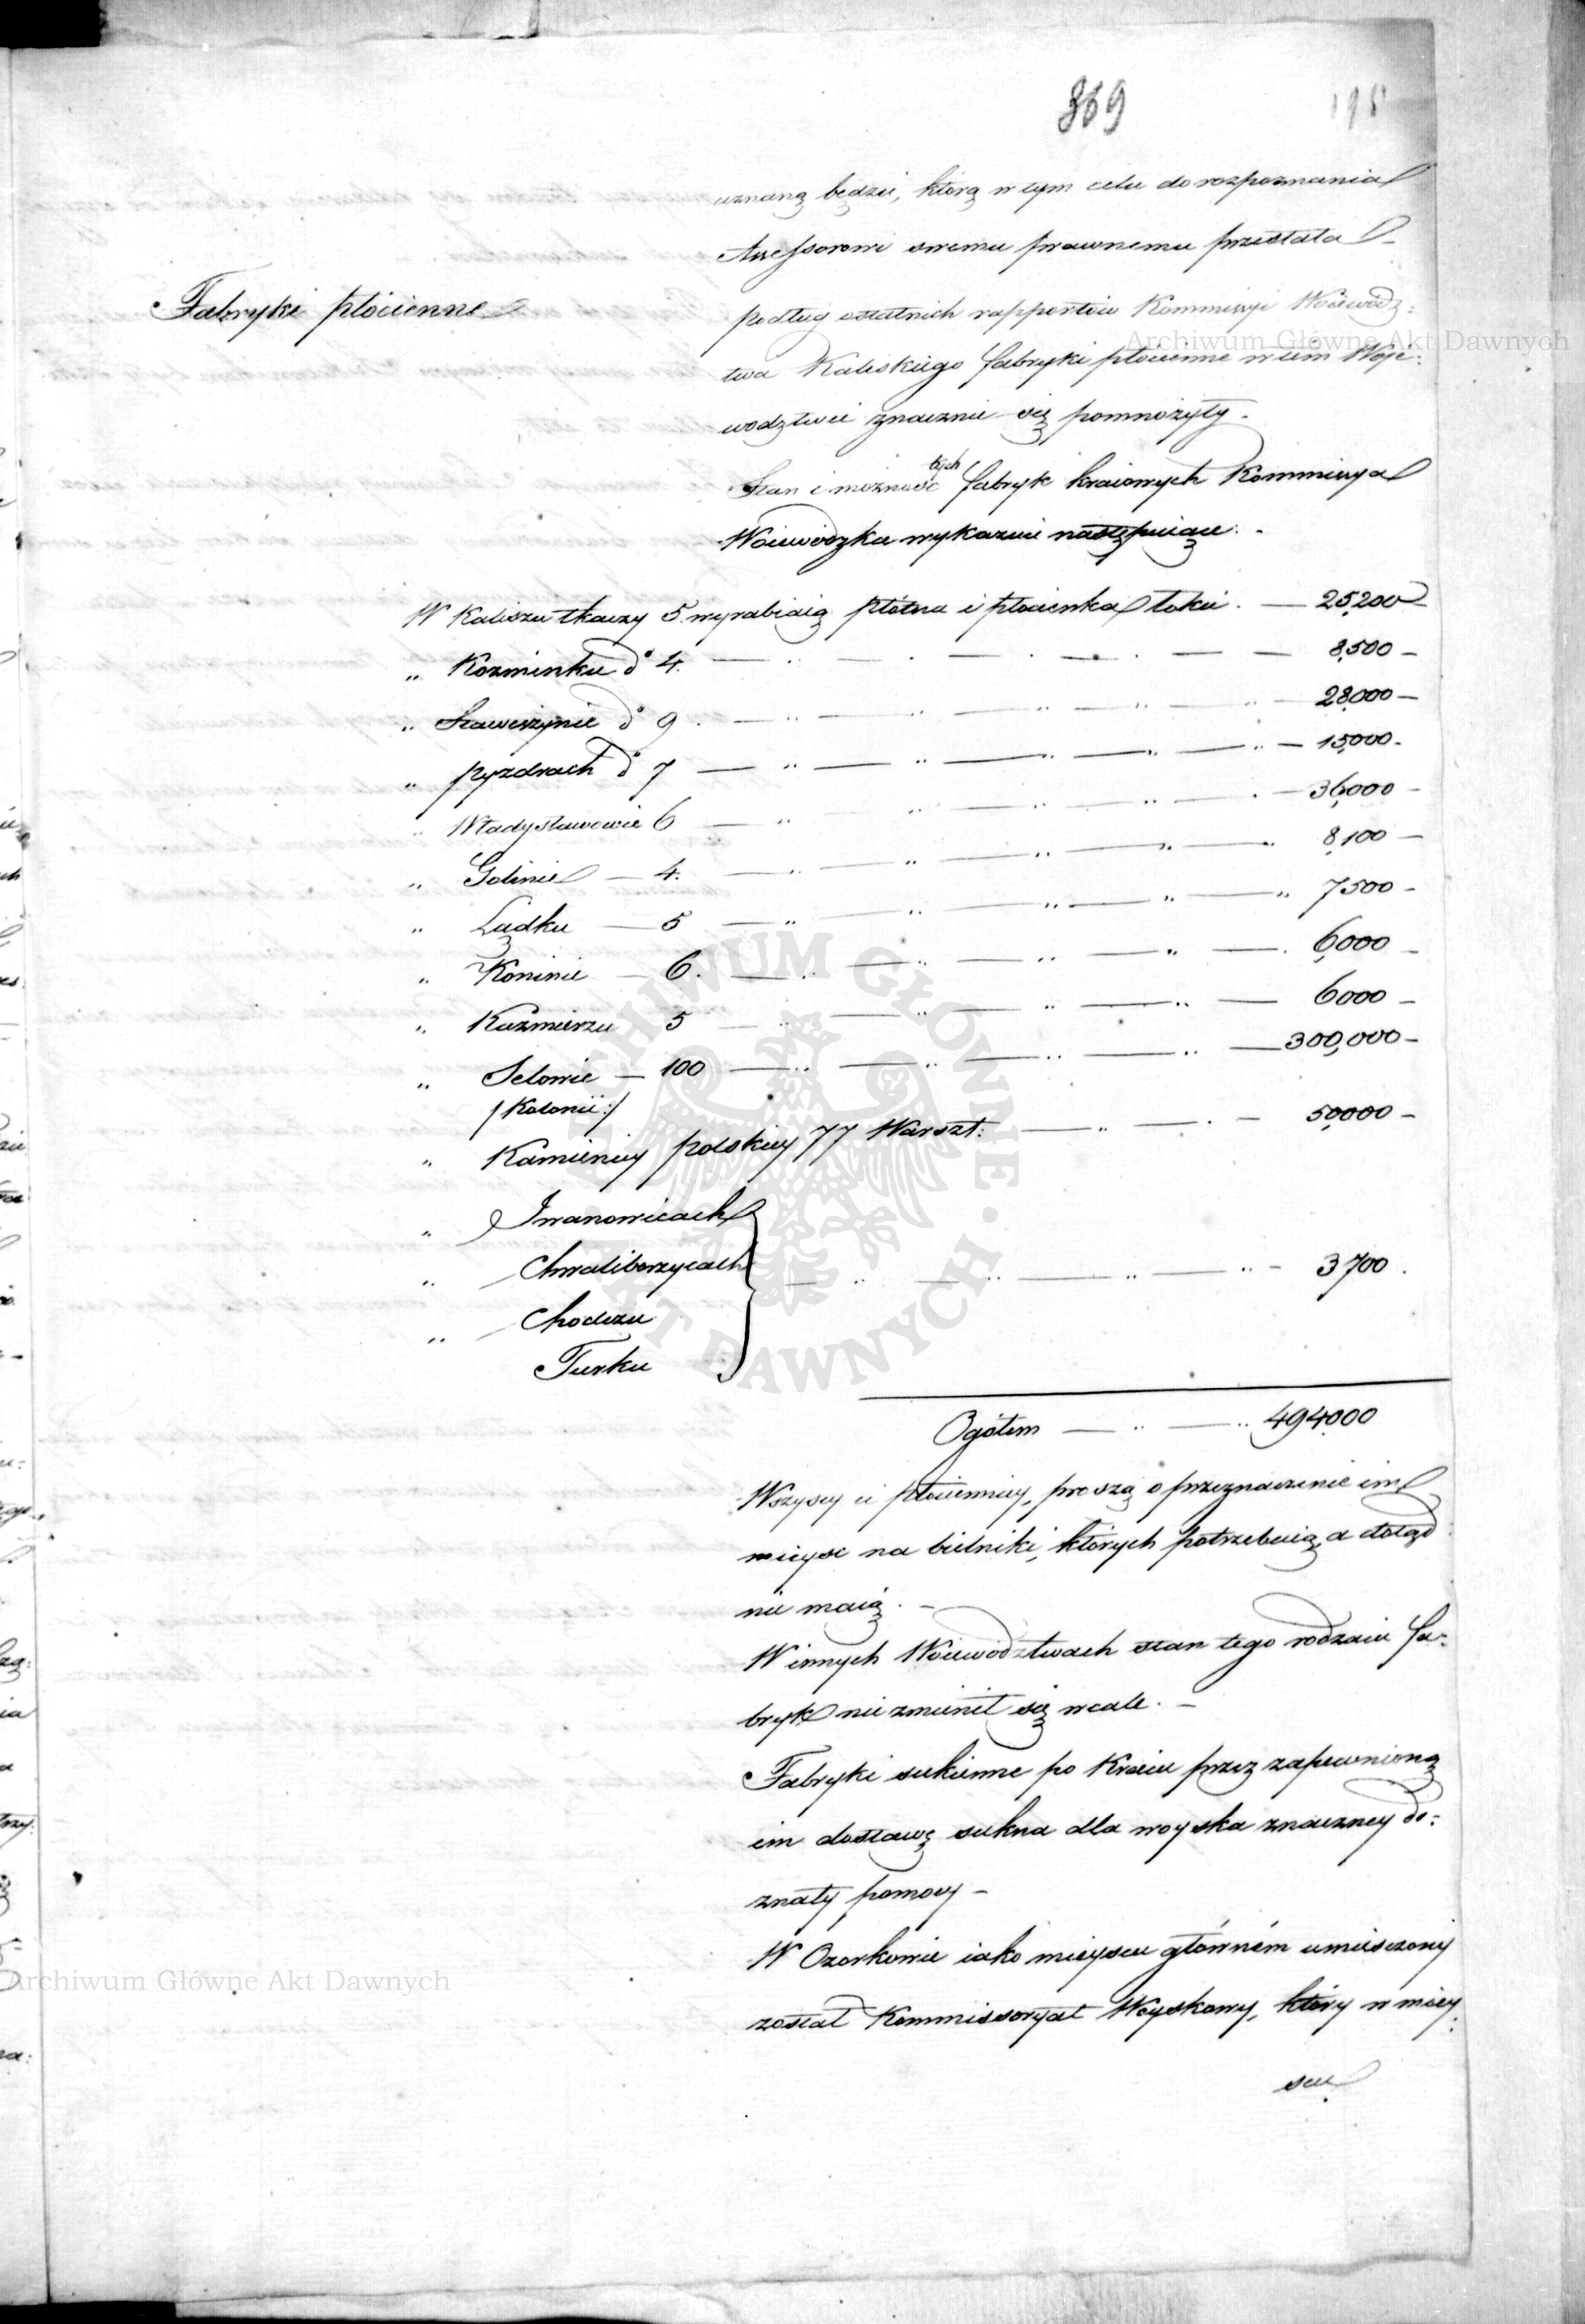 369
195
uznaną będzie, którą w tym celu do rozpoznania
Assessorowi swemu prawnemu przesłała
Fabryki płócienne
podług ostatnich rapportów Kommissyi Woiewódz:
twa Kaliskiego fabryki płócienne w tem Woje:
wodztwie znacznie się pomnożyły.
Stan i możność tych fabryk kraiowych Kommissya
Woiewódzka wykazuie następuiące. -
W Kaliszu tkaczy 5. wyrabiaią płótna i płócienka łokci. — 25,200
„ Kozminku do 4. — 8,500 -
„ Stawiszynie do 9 . — 28,000 —
„ pyzdrach do 7 — 15,000 -
„ Władysławowie 6 — 36,000 -
„ Golinie — 4. — 8,100 —
„ Lądku — 5 — 7500 -
„ Koninie — 6. — 6,000 -
„ Kazmierzu 5 — 6000 -
„ Selowie — 100 — 300,000 -
/Kolonii:/
„ Kamienicy polskiey 77 Warszt: — 50,000 -
„ Iwanowicach
„ Chwaliborzycach — 3700 .
„ Chodczu
Turku
Ogółem — 494,000
Wszyscy ci płóciennicy, proszą o przeznaczenie im
mieysc na bielniki, których potrzebuią, a dotąd
nie maią. -
W innych Woiewództwach stan tego rodzaiu fa:
bryk nie zmienił się wcale. -
Fabryki sukienne po Kraiu przez zapewnioną
im dostawę sukna dla woyska znaczney do:
znały pomocy -
W Ozorkowie iako mieyscu główném umieszczony
został Kommissoryat Woyskowy, który w miey:
scu
Archiwum Główne Akt Dawnych
Archiwum Główne Akt Dawnych
ARCHIWUM GŁÓWNE AKT DAWNYCH